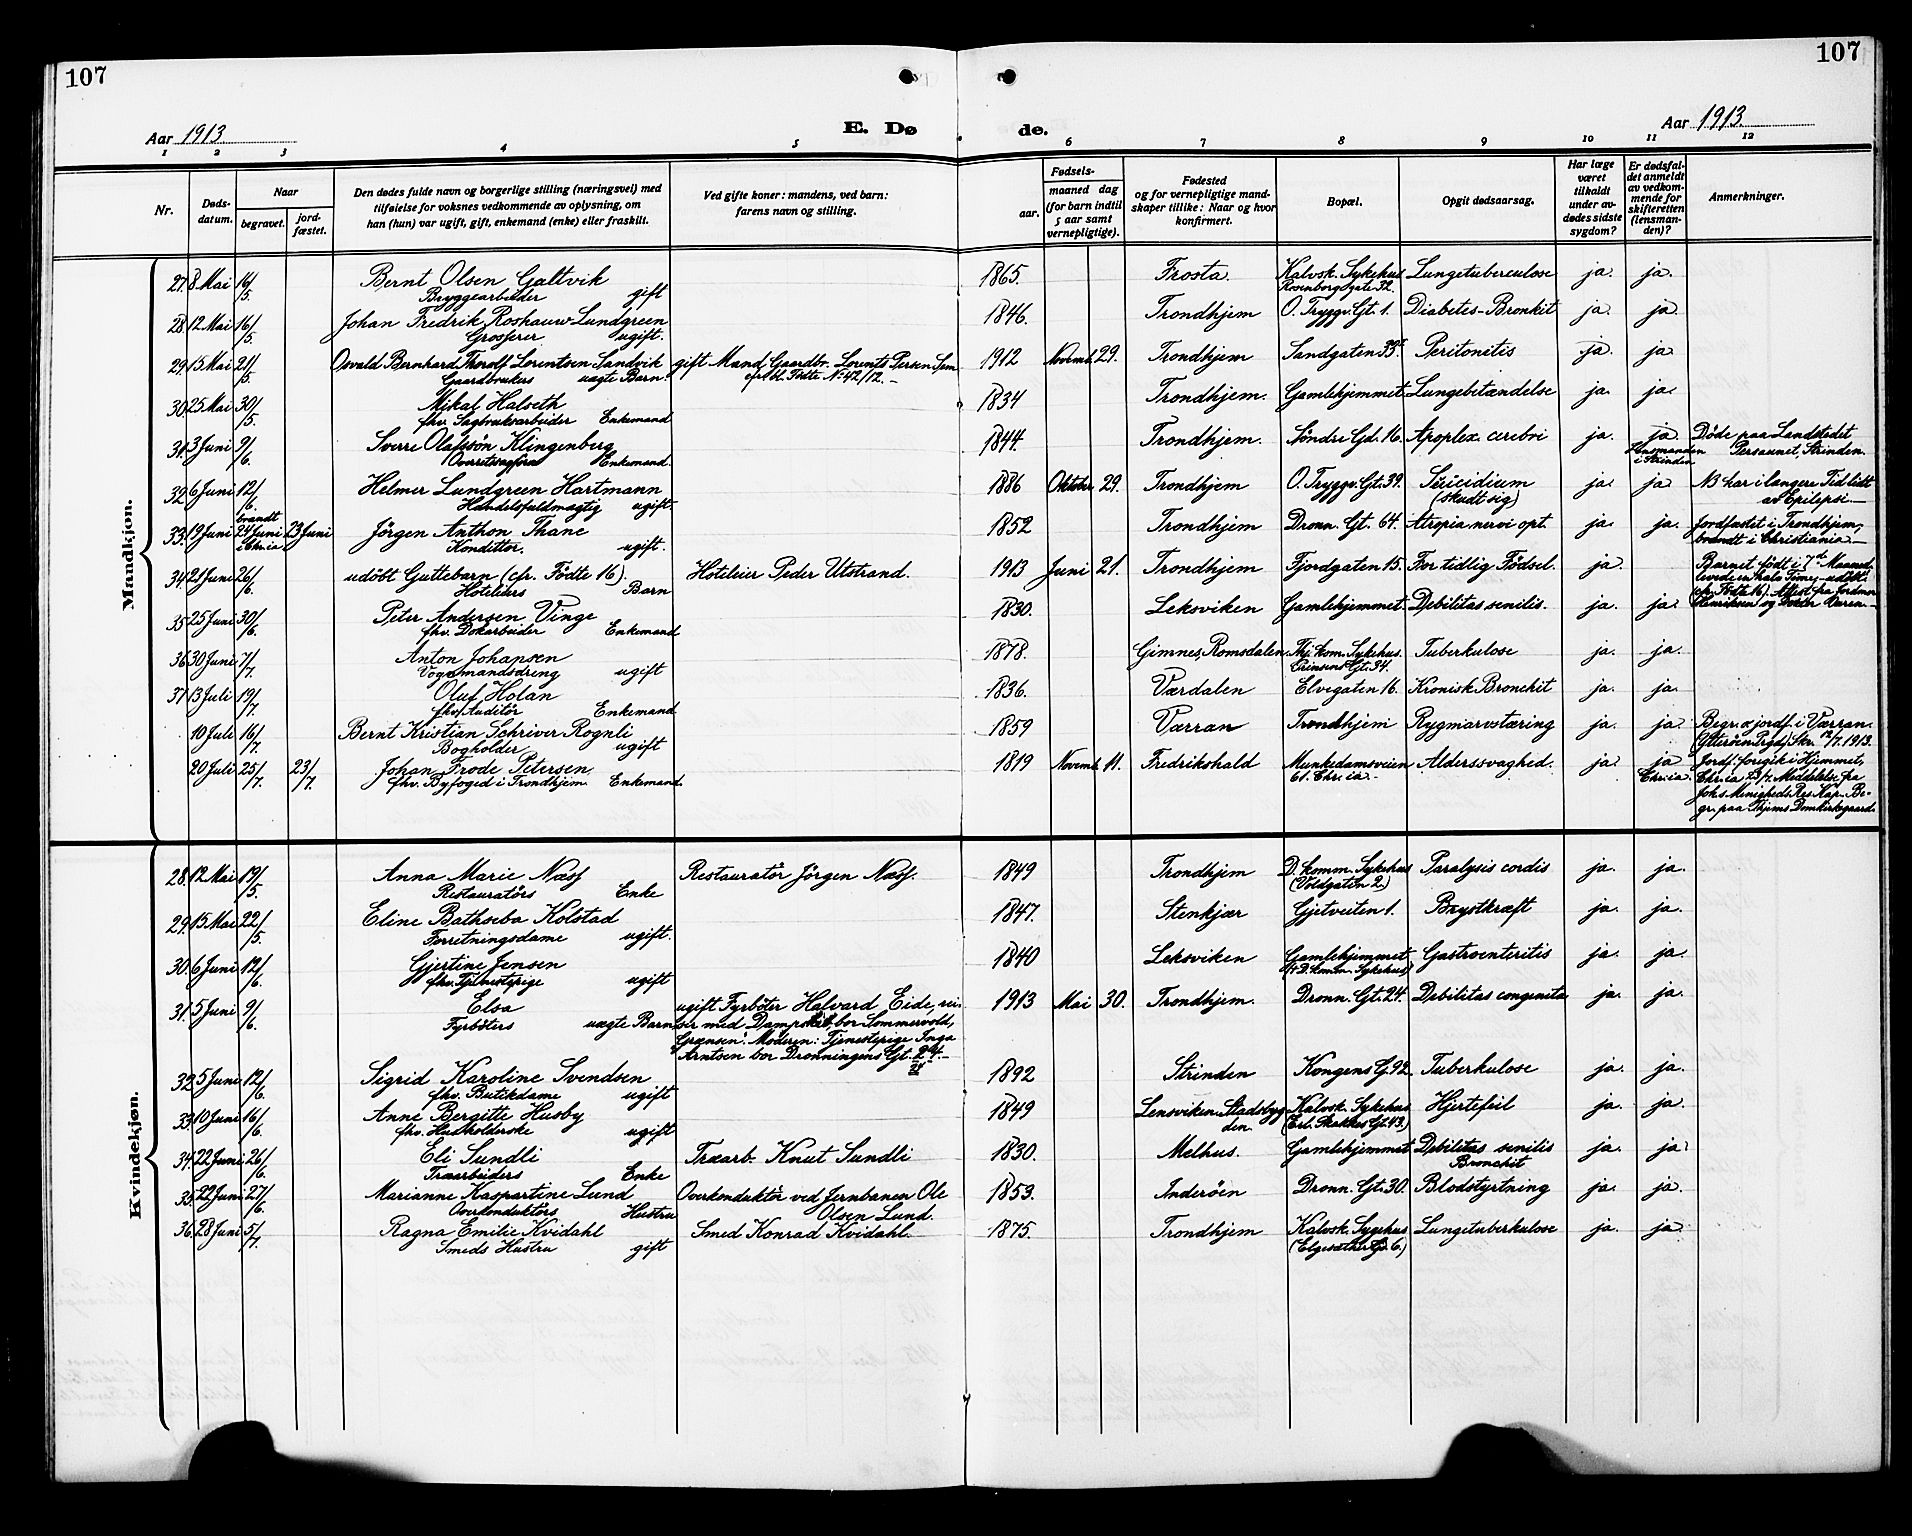 107
107
Aar 1913.
E. Dø
de.
Aar 1913.
1 2 3 4 5 6 7 8 9 10 11 12
Nr.
Døds-
datum.
Naar
begravet.
jord-
fæstet.
Den dødes fulde navn og borgerlige stilling (næringsvei) med
tilføielse for voksnes vedkommende av oplysning, om
han (hun) var ugift, gift, enkemand (enke) eller fraskilt.
Ved gifte koner: mandens, ved barn:
farens navn og stilling.
Fødsels-
aar. maaned dag
(for barn indtil
5 aar samt
vernepligtige).
Fødested
og for vernepligtige mand-
skaper tillike: Naar og hvor
konfirmert.
Bopæl.
Opgit dødsaarsag.
Har læge
været
tilkaldt
under av-
dødes sidste
sygdom?
Er dødsfal-
det anmeldt
av vedkom-
mende for
skifteretten
(lensman-
den)?
Anmerkninger.
Mandkjøn.
27. 8 Mai 16/5. Bernt Olsen Galtvik 1865. Frosta. Kalvsk. Sykehus Lungetuberculose ja. ja.
Bryggearbeider gift Rosenborgsgate 32.
28 12 Mai 16/5. Johan Fredrik Roshauw Lundgreen 1846. Trondhjem O. Tryggv. Gt. 1. Diabetes-Bronkit ja. ja
Grosserer ugift.
29. 15 Mai 21/5. Osvald Bernhard Thorolf Lorentsen Sandvik gift Mand Gaardbr. Lorents Persen Sem 1912 Novemb. 29. Trondhjem Sandgaten 33 Peritonitis ja. ja
Gaardbrukers uægte Barn. cfr. bl. Födte No 42/12.-
30. 25 Mai 30/5. Mikal Halseth 1834 Trondhjem. Gamlehjemmet Lungebetændelse ja. ja.
fhv. Sagbruksarbeider Enkemand
31. 3 Juni 9/6. Sverre Olafssön Klingenberg 1844. Trondhjem. Söndre Gd. 16. Apoplex. cerebri ja. ja Döde paa Landstedet
Overretssagförer Enkemand. Lensmanden i Strinden Persaunet, Strinden.
32. 6 Juni 12/6. Helmer Lundgreen Hartmann 1886 Oktober 29. Trondhjem O. Tryggv. Gt. 39. Suicidium ja. ja NB har i længere Tid lidt
Handelsfuldmægtig ugift. (skudt sig) av Epilepsi.—
33. 19 Juni brændt 24 Juni i Chr.ia 23 Juni Jörgen Anthon Thane 1852 Trondhjem Dronn. Gt. 64. Atropia nervi opt. ja. ja. Jordfæstet i Trondhjem,
Konditor. ugift. brændt i Christiania.—
34. 21 Juni 26/6. udöbt Guttebarn (cfr. Födte 16). Hoteleier Peder Utstrand. 1913 Juni 21. Trondhjem Fjordgaten 15. For tidlig Födsel. ja. Barnet födt i 7de Maaned
Hoteleiers Barn levede en halv Time, — udöbt.
cfr. Födte 16). Attest fra Jordmor
35 25 Juni 30/6. Peter Andersen Vinge 1830. Leksviken Gamlehjemmet. Debilitas senilis. ja. ja. Henriksen og Doktor
fhv. Dokarbeider Enkemand
36 30 Juni 7/7. Anton Johansen 1878. Gimnes, Romsdalen. Thj. kom. Sykehus. Tuberkulose ja. ja.
Vognmandsdreng ugift Prinsens Gt. 34.
37. 13 Juli 19/7. Oluf Holan 1836. Værdalen Elvegaten 16. Kronisk Bronchit ja. ja.
fhv. Auditör Enkemand
10 Juli 16/7. Bernt Kristian Schriver Rognli 1859 Værran Trondhjem Rygmarvstæring ja. ja. Begr. & jordf. i Værran
Bogholder ugift (Ytteröen Prgd.) Skr. 12/7. 1913.
20 Juli 25/7. 23/7. Johan Frode Petersen. 1819 Novemb. 11. Fredrikshald Munkedamsveien Alderssvaghed. ja. ja Jordf. foregik i Hjemmet,
fhv. Byfoged i Trondhjem. Enkemand. 61. Chr.ia.- Chr.ia. Chr.ia 23/7. Meddelelse fra
Joh.s Menigheds Res. Kap. Be-
gr. paa Thjems Domkirkegaard.
Kvindekjøn.
28. 12 Mai 19/5. Anna Marie Næss Restauratör Jörgen Næss. 1849 Trondhjem D. komm. Sykehus Paralysis cordis ja. ja.
Restauratörs Enke (Voldgaten 2.)
29. 15 Mai 22/5. Eline Bathseba Kolstad 1847. Stenkjær Gjetveiten 1. Brystkræft ja. ja.
Forretningsdame ugift.
30. 6 Juni 12/6. Gjertine Jensen 1840 Leksviken Gamlehjemmet Gastroenteritis ja. ja.
fhv. Tjenestepige ugift (D. komm. Sykehus)
31. 5 Juni 9/6. Elsa ugift Fyrböter Halvard Eide, rei- 1913 Mai 30. Trondhjem. Dronn. Gt. 24. Debilitas congenita ja. ja.
Fyrböters uægte Barn. ser med Dampskib, bor Sommervold,
Grænsen. Moderen: Tjenestepige Inga
Arntsen bor Dronningens Gt. 24.—
32 5 Juni 12/6. Sigrid Karoline Svendsen 1892 Strinden Kongens G. 92. Tuberkulose ja. ja.
fhv. Butikdame ugift
33 10 Juni 16/6. Anne Bergitte Husby 1849 Lensviken, Stadsbyg- Kalvsk. Sykehus Hjertefeil ja. ja.
fhv. Husholderske ugift den. (Erl. Skakkes Gt. 43.)
34. 22 Juni 26/6. Eli Sundli Træarb. Knut Sundli 1830. Melhus. Gamlehjemmet Debilitas senilis ja. ja.
Træarbeiders Enke Bronchit
35. 22 Juni 27/6. Marianne Kaspartine Lund Overkonduktör ved Jernbanen Ole 1853. Inderöen Dronn. Gt. 30. Blodstyrtning ja. ja.
Overkonduktörs Hustru Olsen Lund.
36. 28 Juni 5/7. Ragna Emilie Kvidahl Smed Konrad Kvidahl. 1875. Trondhjem Kalvsk. Sygehus Lungetuberkulose ja. ja.
Smeds Hustru gift (Elgesæther Gt. 6.)